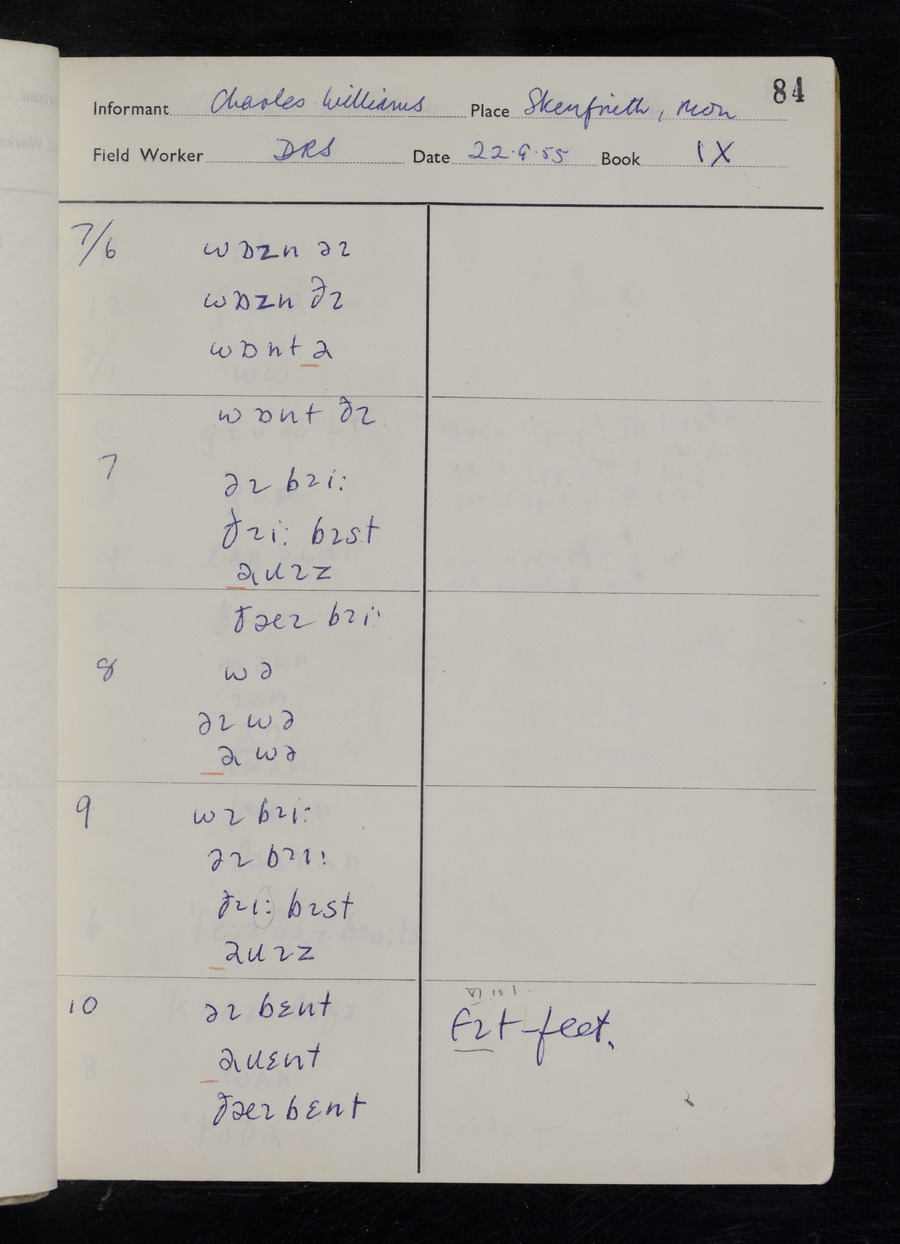 84
Informant Charles Williams Place Skenfrith, Mon
Field Worker DRS Date 22.9.55 Book IX
7/6 wɒzn əɪ
wɒzn ðɪ
wɒnt ə
wɒnt ðɪ
7 əɪ bɪi:
ðɪi: bɪst
ənɪz
ðəɪ bɪi:
8 wə
əɪ wə
ə wə
9 wɪ bɪi:
əɪ bɪi:
ðɪi: bɪst
ənɪz
10 əɪ bɛnt
VI 10.1
fɪt – feet.
ənɛnt
ðəɪ bɛnt